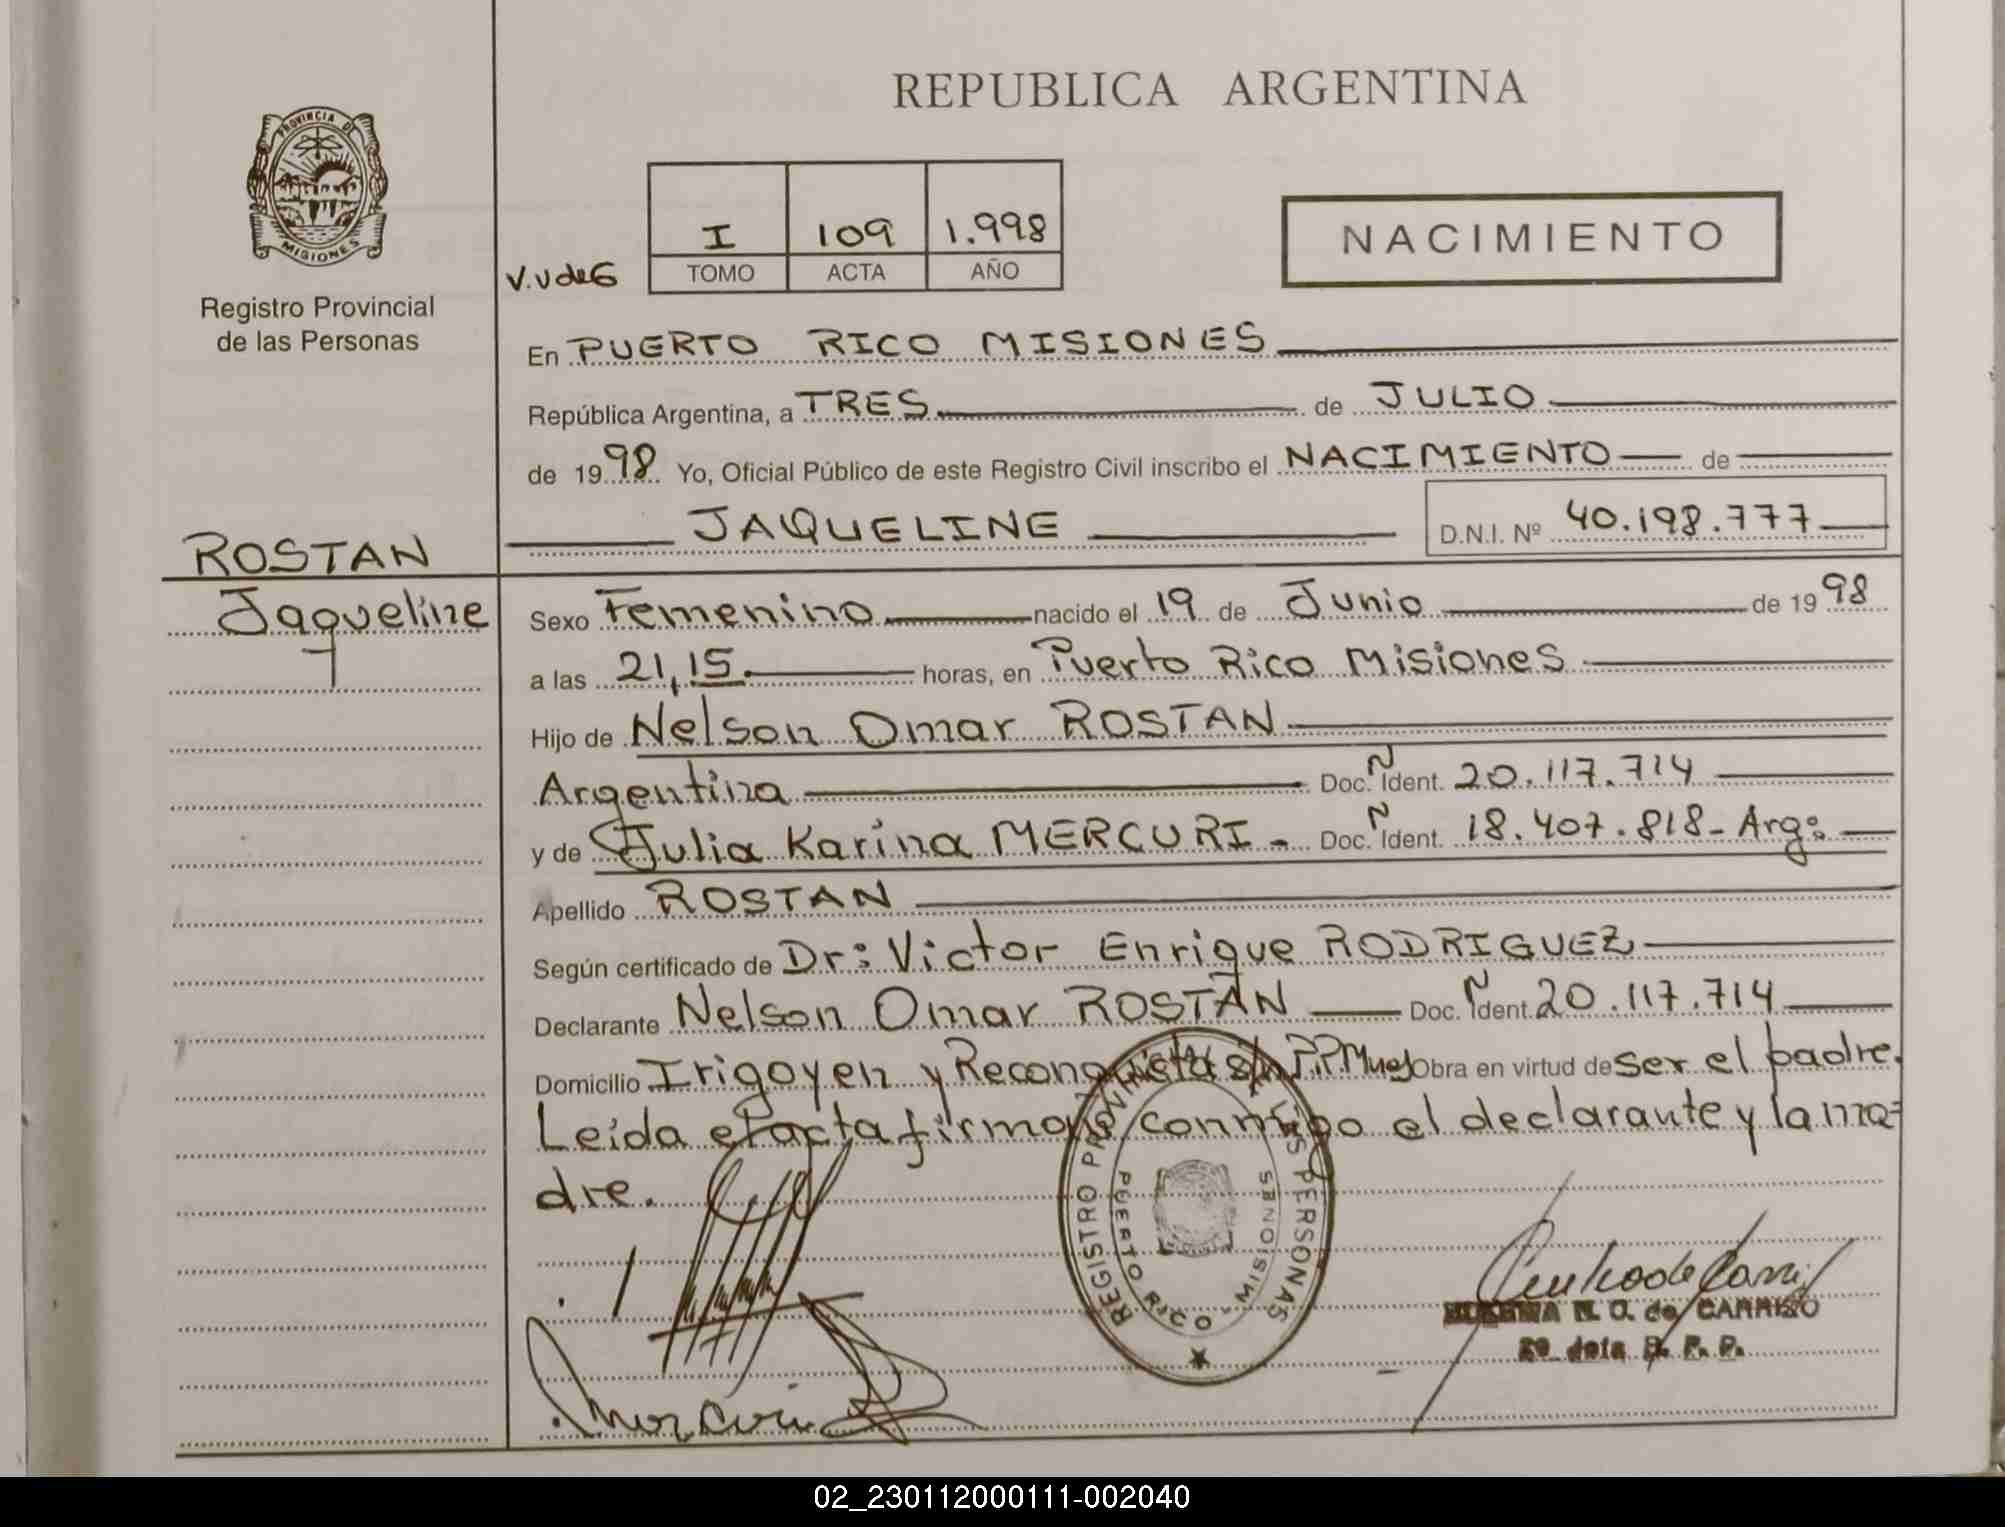 REPUBLICA ARGENTINA
PROVINCIA DE
MISIONES
Registro Provincial
de las Personas
I 109 1.998
TOMO ACTA AÑO
V.V de G
NACIMIENTO
En PUERTO RICO MISIONES
República Argentina, a TRES de JULIO
de 1998 Yo, Oficial Público de este Registro Civil inscribo el NACIMIENTO de
JAQUELINE D.N.I. Nº 40.198.777
ROSTAN
Jaqueline
Sexo Femenino nacido el 19 de Junio de 1998
a las 21,15 horas, en Puerto Rico Misiones
Hijo de Nelson Omar ROSTAN
Argentina Doc. Ident. 20.117.714
y de Julia Karina MERCURI.- Doc. Ident. 18.407.818- Arg:
Apellido ROSTAN
Según certificado de Dr: Victor Enrique RODRIGUEZ
Declarante Nelson Omar ROSTAN Doc. Ident. 20.117.714
Domicilio Irigoyen y Reconquista s/n P.P. Obra en virtud de ser el padre.
Leída el acta firma conmigo el declarante y la ma=
dre.
REGISTRO PROVINCIAL DE LAS PERSONAS
PUERTO RICO - MISIONES
N. O. de CARRISO
R. P. P.
02_230112000111-002040